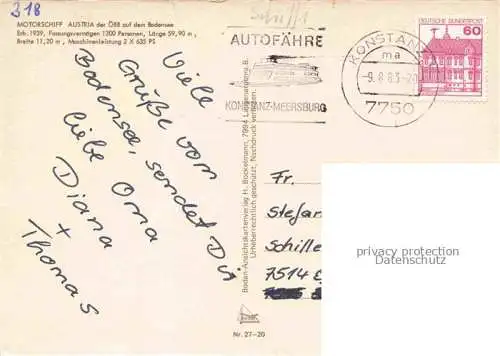 318
MOTORSCHIFF AUSTRIA der ÖBB auf dem Bodensee
Erb. 1939, Fassungsvermögen 1200 Personen, Länge 59,90 m,
Breite 11,20 m, Maschinenleistung 2 X 635 PS
Schiffe
AUTOFÄHRE
KONSTANZ-MEERSBURG
KONSTANZ
ma
-9.8.83-20
7750
DEUTSCHE BUNDESPOST
60
Viele
Grüße vom
Bodensee, sendet Dir
liebe Oma
Diana
+
Thomas
Boden-Ansichtskartenverlag H. Bockelmann, 7994 Langenargen a. B.
Urheberrechtlich geschützt, Nachdruck verboten.
Fr.
Stefan
Schille
7514
privacy protection
Datenschutz
Nr. 27-20